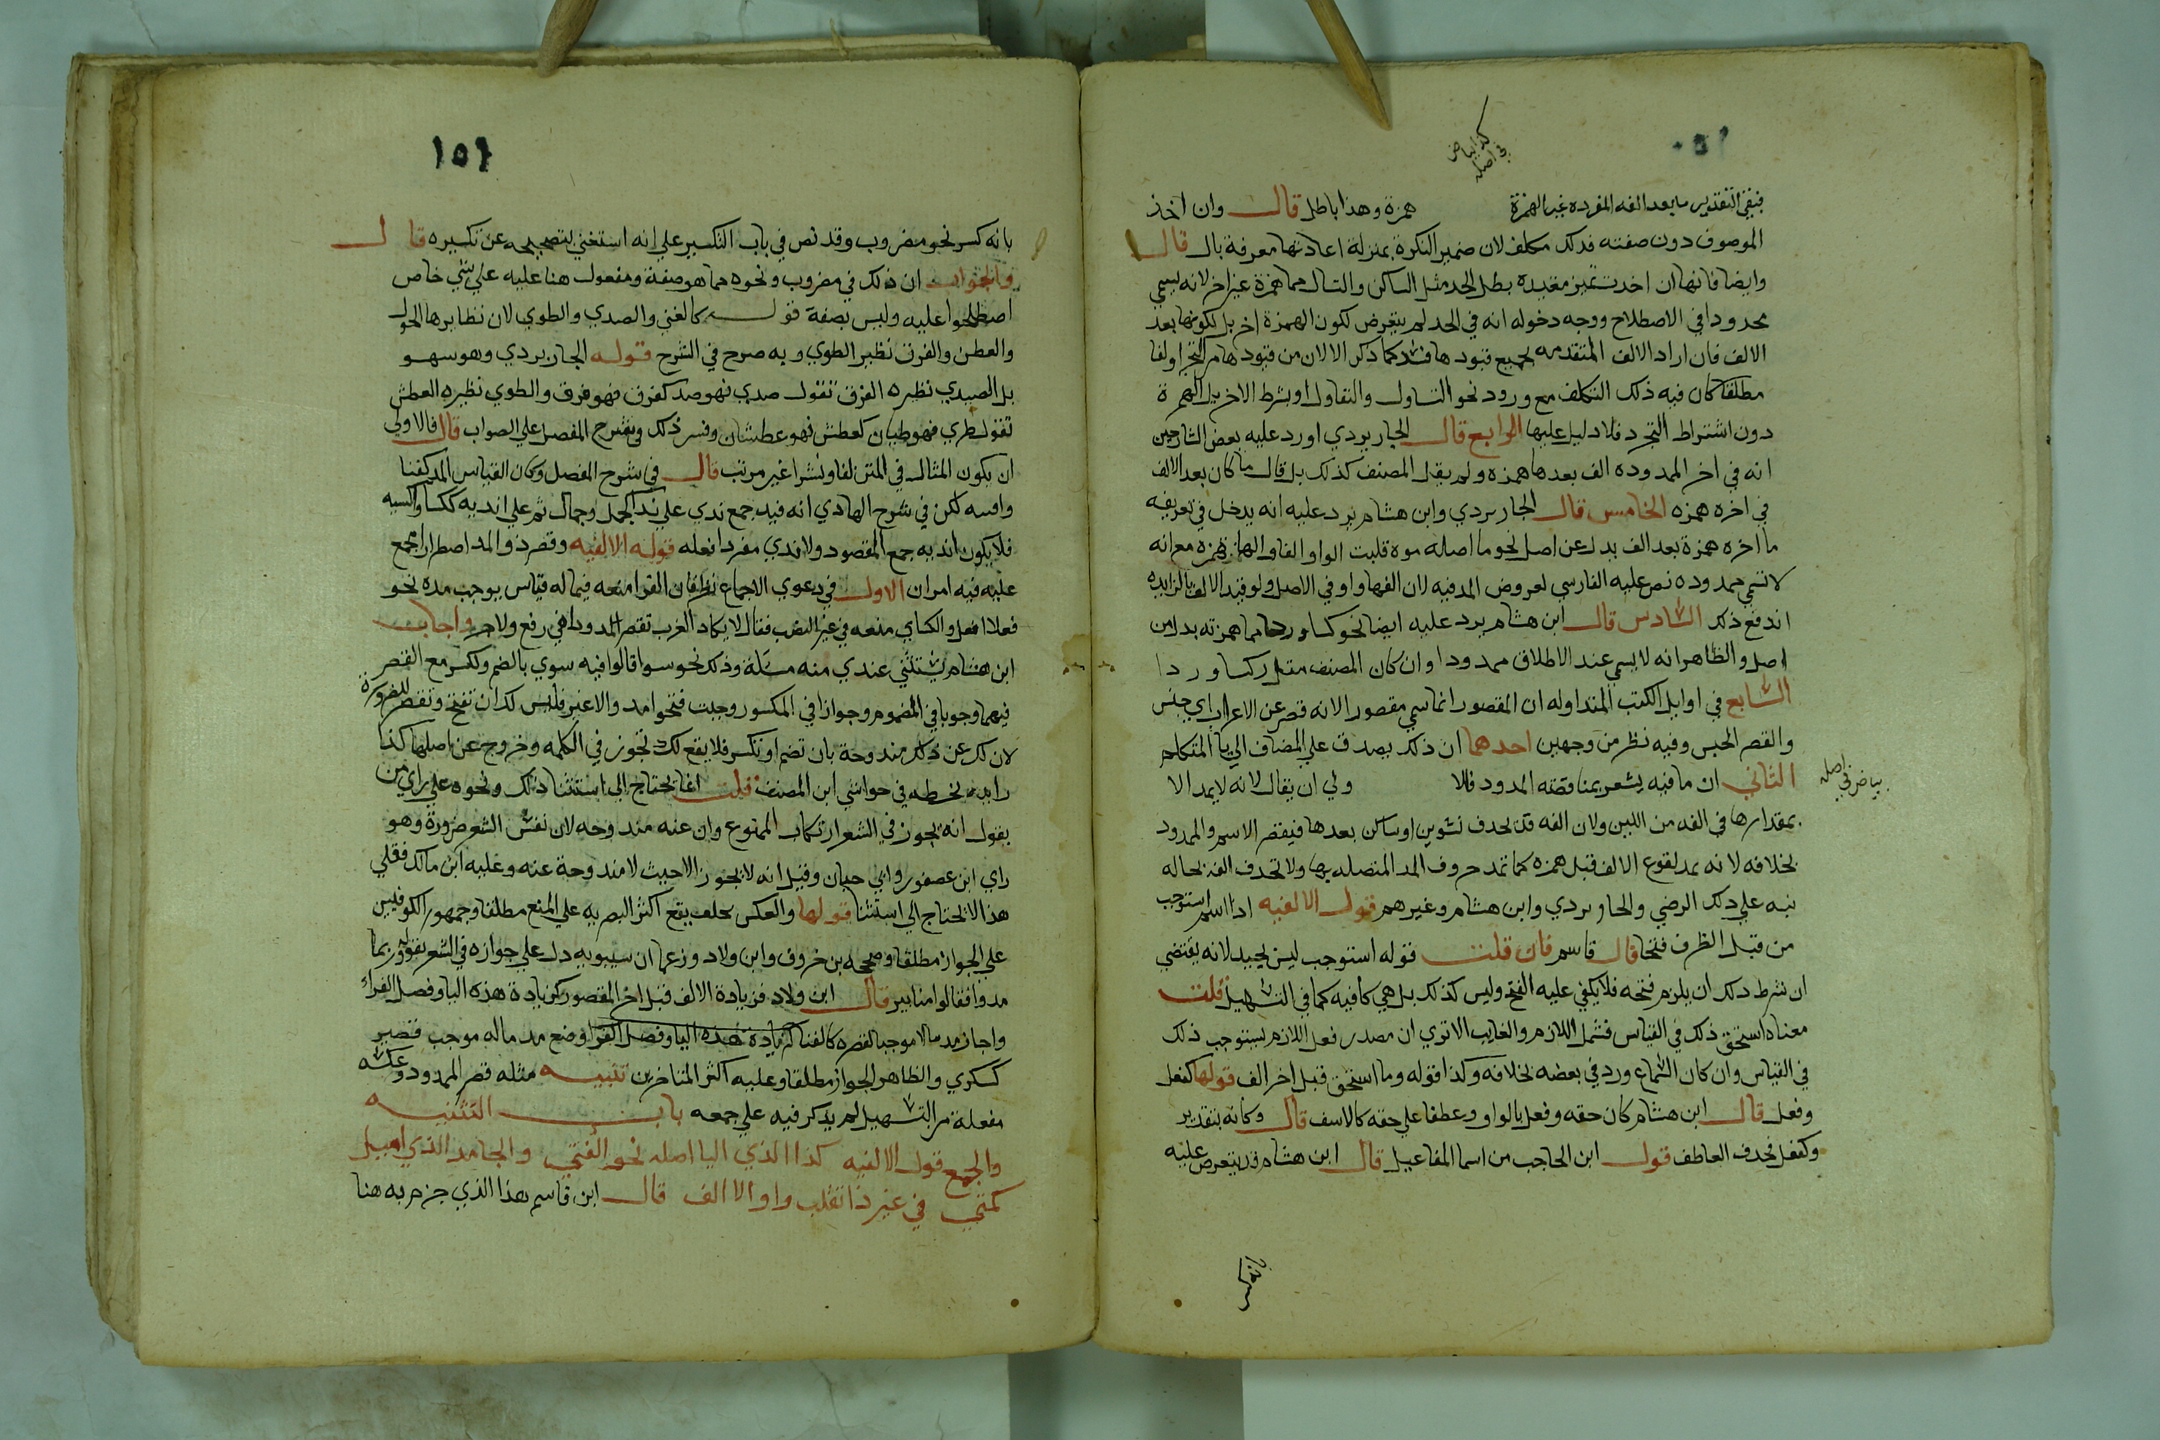 كذا بياض
في اصله
فيبقى التقدير ما بعد الفه المفردة غير الهمزة همزة وهذا باطل قال وان اخذ
الموصوف دون صفته فذلك مكلف لان ضمير النكرة بمنزلة اعادتها معرفة بال قال
وايضا فانها ان اخدت بطل الحد مثل الساكن عير اخر لانه يسمى
محدودا في الاصطلاح ووجه دخوله انه في الحد لم يتعرض لكون الهمزة اخر بل لكونها بعد
الالف فان اراد الالف المتقدمه لجميع قيودها كما ذكر الا لان من قيودها
مطلقا كان فيه ذلك التكلف مع ورود نحو التساول والتفاول او بشرط الاخر بل الهمزة
دون اشتراط التجرد فلا دليل عليها الرابع قال الجاربردي اورد عليه بعض الشارحين
انه في اخر الممدوده الف بعدها همزه ولم يقل المصنف كذلك بل قال ما كان بعد الالف
في اخره همزه الخامس قال الجاربردي وابن هشام يرد عليه انه يدخل في تعريفه
ما اخره همزة بعد الف بدل عن اصل نحو ما اصله موه قلبت الواو الفا والها همزه مع انه
لا تسمى ممدوده نص عليه الفارسي لعروض المد فيه لان الفها واو في الاصل ولو قيد الالف بالزايده
اندفع ذلك السادس قال ابن هشام يرد عليه ايضا نحو كساء وردا مما همزته بدل من
اصل والظاهر انه لا يسمى عند الاطلاق ممدودا وان كان المصنف مثل بكسا وردا
السابع في اوايل الكتب المتداوله ان المقصور انما سمي مقصورا لانه قصر عن الاعراب اي حبس
والقصر الحبس وفيه نظر من وجهين احدهما ان ذلك يصدق على المضاف الى يا المتكلم
الثاني ان ما فيه يشعر بمناقضته الممدود فلا ولي ان يقال لانه لا يمد الا
بياض في اصله
بمقدار ها في الفه من اللين ولان الفه قد تحدف لتنوين او ساكن بعدها فيقصر الاسم والممدود
بخلافه لانه يمد لوقوع الالف قبل همزه كما تمد حروف المد المتصله بها ولا تحدف الفه بحاله
نبه على ذلك الرضي والجاربردي وابن هشام وغيرهم قول الالفيه اذا اسم استوجب
من قبل الظرف فتحا قال قاسم فان قلت قوله استوجب ليس بجيد لانه يقتضي
ان شرط ذلك ان يلزم فتحه فلا يكفي عليه الفتح وليس كذلك بل هي كافيه كما في التسهيل قلت
معناه استحق ذلك في القياس فشمل اللازم والغالب الا ترى ان مصدر فعل اللازم يستوجب ذلك
في القياس وان كان السماع ورد في بعضه بخلافه وكذا قوله وما استحق قبل اخر الف قولها كفعل
وفعل قال ابن هشام كان حقه وفعل بالواو وعطفا على حقه كالاسف قال وكانه بتقدير
وكفعل فحدف العاطف قول ابن الحاجب من اسما المفاعيل قال ابن هشام قد يتعرض عليه
١٥١
بانه كسر نحو مضروب وقد نص في باب التكسير على انه استغني بتصحيحه عن تكسيره قال
والجواب ان ذلك في مضروب ونحوه مما هو صفة ومفعول هنا عليه على شي خاص
اصطلحوا عليه وليس بصفة قوله كالغنى والصدي والطوي لان نظايرها الحول
والعطش والفرق نظير الطوي وبه صرح في الشرح قوله الجاربردي وهو سهو
بل الصدي نظيره الفرق تقول صدي فهو صد كفرق فهو فرق والطوي نظيره العطش
تقول طوي فهو طيان كعطش فهو عطشان وفسر ذلك في شرح المفصل على الصواب قال فالاولى
ان يكون المثال في المتن لفا ونشرا غير مرتب قال في شرح المفصل وكان القياس
لكن في شرح الهادي انه فيه جمع ندي على ندا كجمل وجمال ثم على انديه ككسا واكسيه
فلا يكون انديه جمع المقصود ولا ندي مفرد افعله قوله الالفيه وقصر ذو المد اضطرارا مجمع
عليه فيه امران الاول في دعوى الاجماع نظر فان الفرا منعه فيما له قياس يوجب مده نحو
فعلا افعل والكساي منعه في غير النصب فقال لا يكاد العرب تقصر الممدود في رفع ولا جر واجاب
ابن هشام يستثنى عندي منه مسلة وذلك نحو سوا قالوا فيه سوى بالضم والكسر مع القصر
فيهما وجوبا في المضموم وجوازا في المكسور وجبت فتحوا مد والا غير فليس لك ان تفتح وتقصر للضرورة
لان لك عن ذلك مندوحة بان تضم او تكسر فلا يقع لك تجوز في الكلمه وخروج عن اصلها كذا
رايته بخطه في حواشي ابن المصنف قلت انما يحتاج الى استثنا ذلك ونحوه على راي من
يقول انه يجوز في الشعر ارتكاب الممنوع وان عنه مندوحه لان نفس الشعر ضرورة وهو
راي ابن عصفور وابي حيان وقيل انه لا يجوز الا حيث لا مندوحة عنه وعليه ابن مالك فعلى
هذا لا يحتاج الى استثنا قولها والعكس بخلف يقع اكثر البصريه على المنع مطلقا وجمهور الكوفيين
على الجواز مطلقا وصححه بن خروف وابن ولاد وزعما ان سيبويه دل على جوازه في الشعر بقوله وربما
مدوا فقالوا منابير قال ابن ولاد فزيادة الالف قبل اخر المقصور كزيادة هذه اليا وفصل الفراء
واجاز مد ما لا موجب لقصره كالغنا ومنع مد ماله موجب قصر
كسكرى والظاهر الجواز مطلقا وعليه اكثر المتاخرين تنبيه مثله قصر الممدود وعكسه
مفعلة من التسهيل لم يذكر فيه على جمعه باب التثنيه
والجمع قول الالفيه كذا الذي اليا اصله نحو الفتى والجامد الذي اميل
كمتى في غير ذا تقلب واوا الالف قال ابن قاسم هذا الذي جزم به هنا